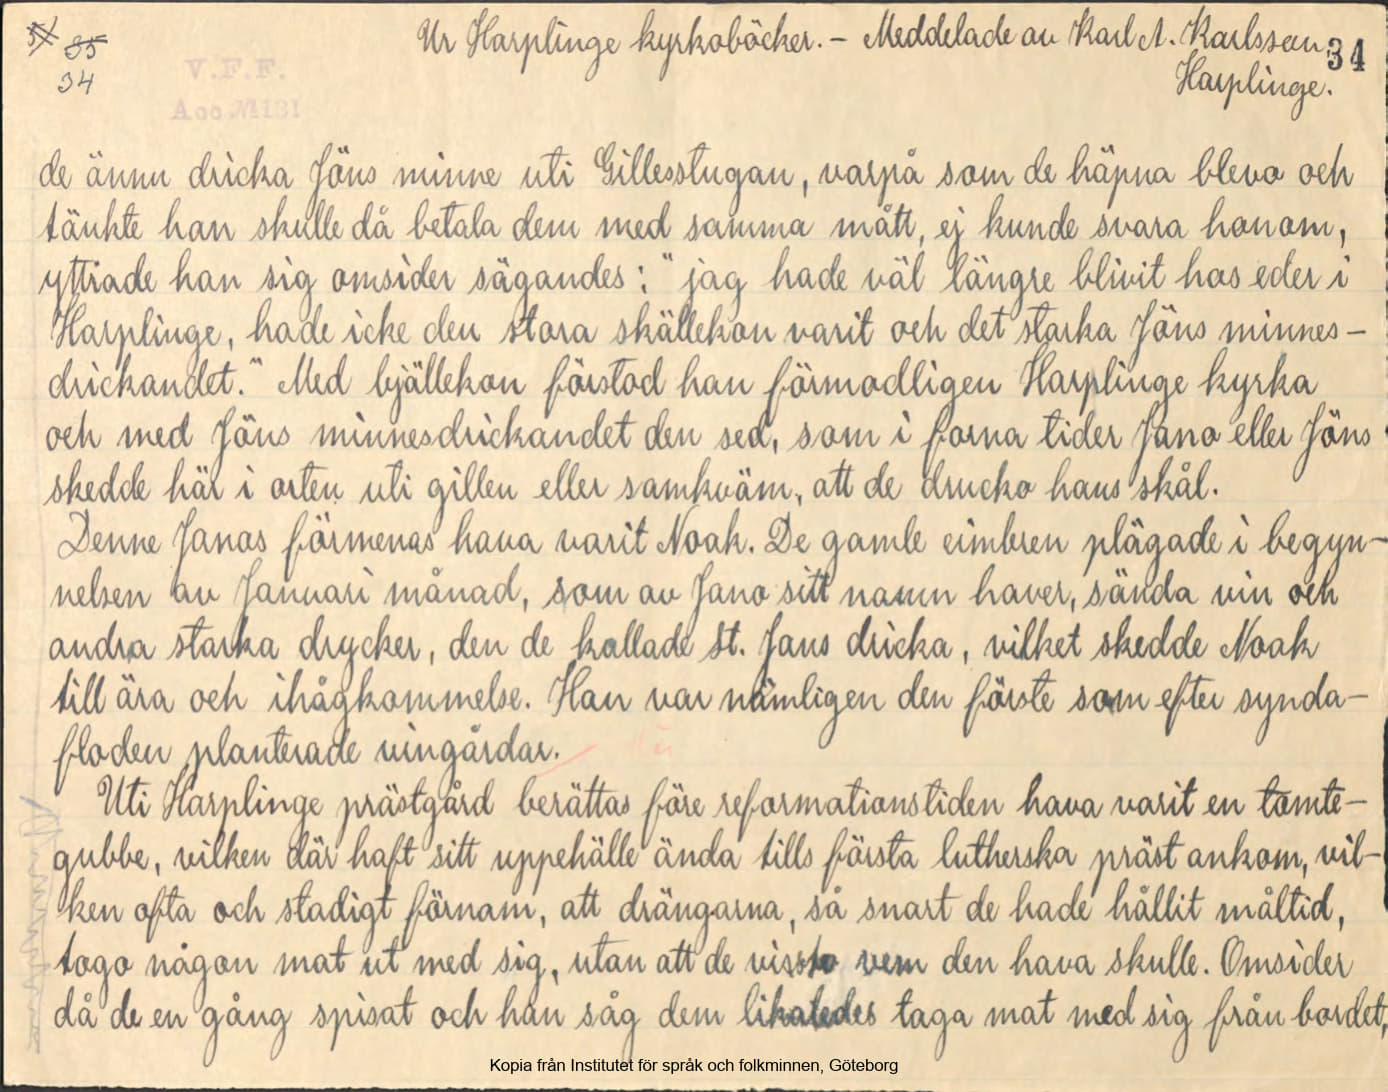 35
34
Ur Harplinge kyrkoböcker. – Meddelade av Karl A. Karlsson,
34
Harplinge.
V.F.F.
Acc. M 131
de ännu dricka Jöns minne uti Gillesstugan, varpå som de häpna blevo och
tänkte han skulle då betala dem med samma mått, ej kunde svara honom,
yttrade han sig omsider sägandes: "jag hade väl längre blivit hos eder i
Harplinge, hade icke den stora skällekon varit och det starka Jöns minnes-
drickandet." Med bjällekon förstod han förmodligen Harplinge kyrka
och med Jöns minnesdrickandet den sed, som i forna tider Jano eller Jöns
skedde här i orten uti gillen eller samkväm, att de drucko hans skål.
Denne Janas förmenas hava varit Noak. De gamle eimbren plägade i begyn-
nelsen av Januari månad, som av Jano sitt namn haver, sända vin och
andra starka drycker, den de kallade St. Jans dricka, vilket skedde Noak
till ära och ihågkommelse. Han var nämligen den förste som efter synda-
floden planterade vingårdar.
Uti Harplinge prästgård berättas före reformationstiden hava varit en tomte-
gubbe, vilken där haft sitt uppehälle ända tills första lutherska präst ankom, vil-
ken ofta och stadigt förnam, att drängarna, så snart de hade hållit måltid,
togo någon mat ut med sig, utan att de visste vem den hava skulle. Omsider
då de en gång spisat och han såg dem likaledes taga mat med sig från bordet,
Kopia från Institutet för språk och folkminnen, Göteborg